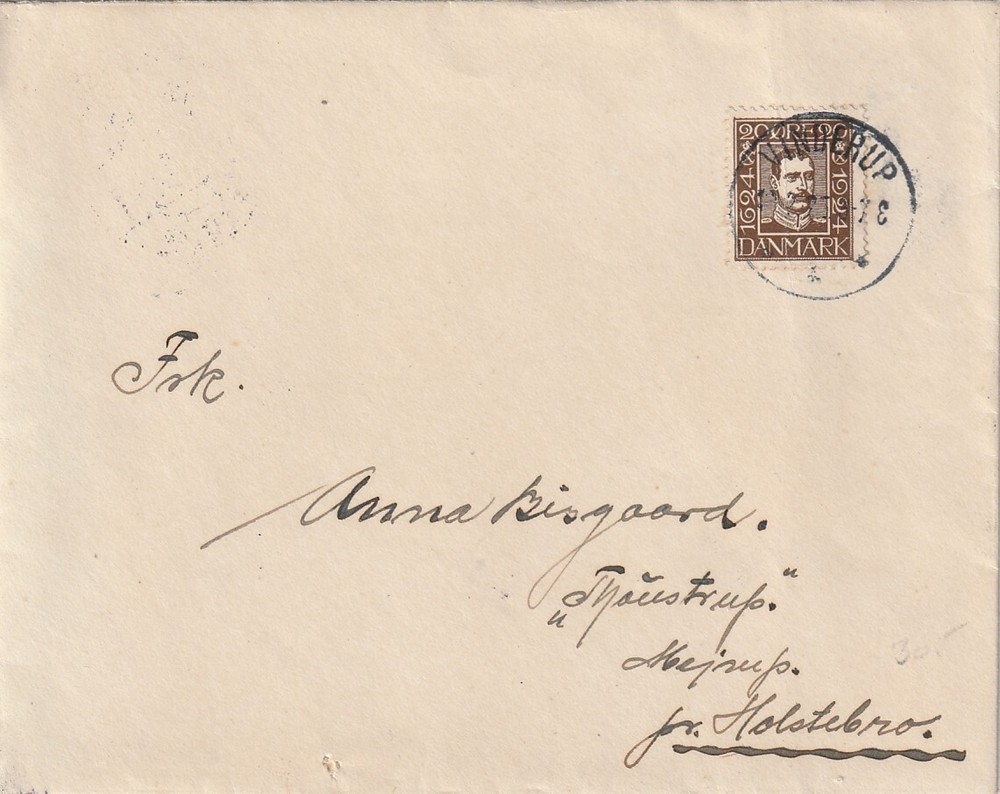 20 ØRE 20
1624 1924
DANMARK
VINDERUP
Frk.
Anna Bisgaard.
„Thoustrup."
Mejrup.
pr. Holstebro.
30.-